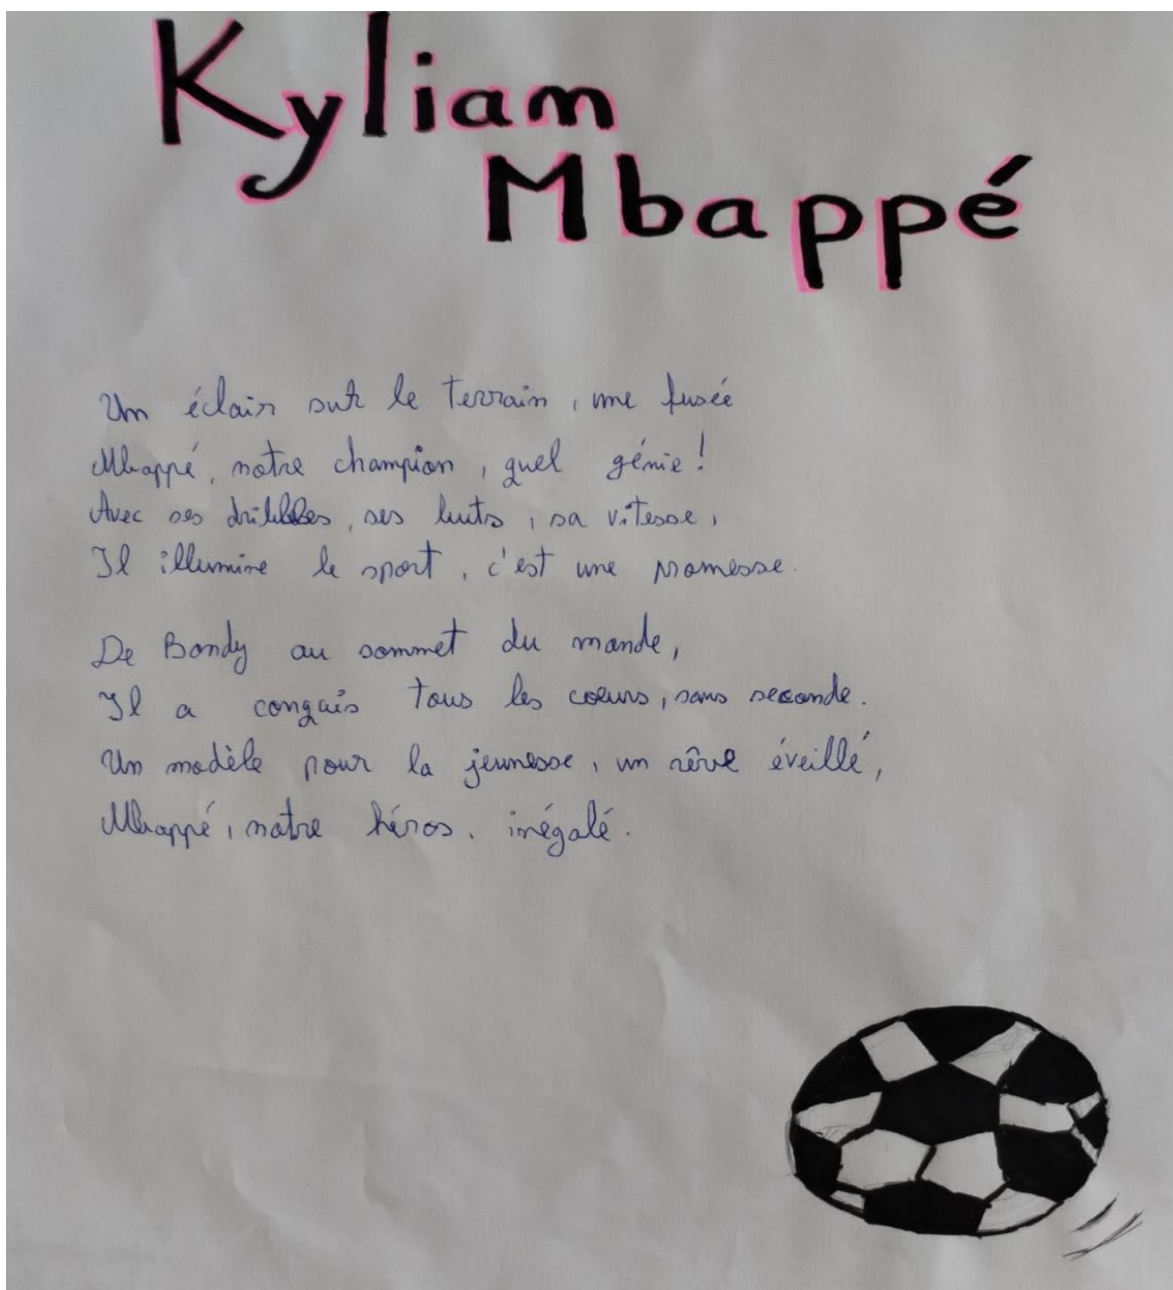 Kyliam
Mbappé
Un éclair sur le terrain, une fusée
Mbappé, notre champion, quel génie!
Avec ses dribbles, ses buts, sa vitesse,
Il illumine le sport, c'est une promesse.
De Bondy au sommet du monde,
Il a conquis tous les coeurs, sans seconde.
Un modèle pour la jeunesse, un rêve éveillé,
Mbappé, notre héros, inégalé.